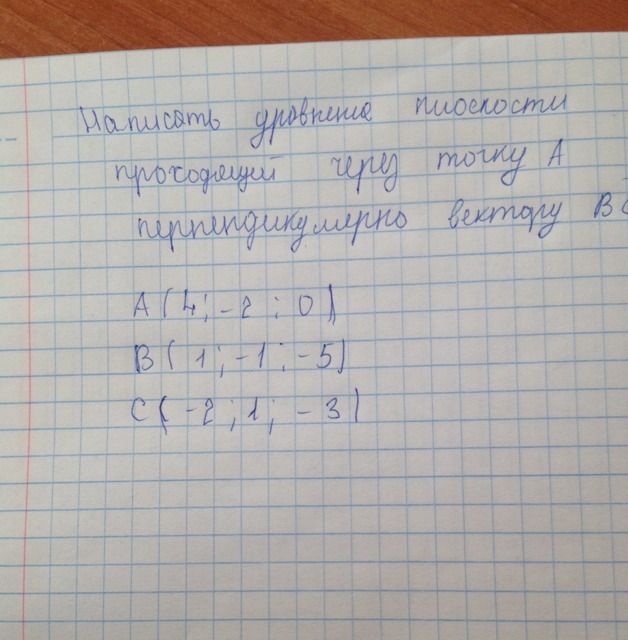 Написать уровнение плоскости
проходящий через точку А
перпендикулярно вектору ВС
А(4; -2 ; 0)
В( 1 ; -1 ; -5)
С( -2 ; 1 ; - 3)